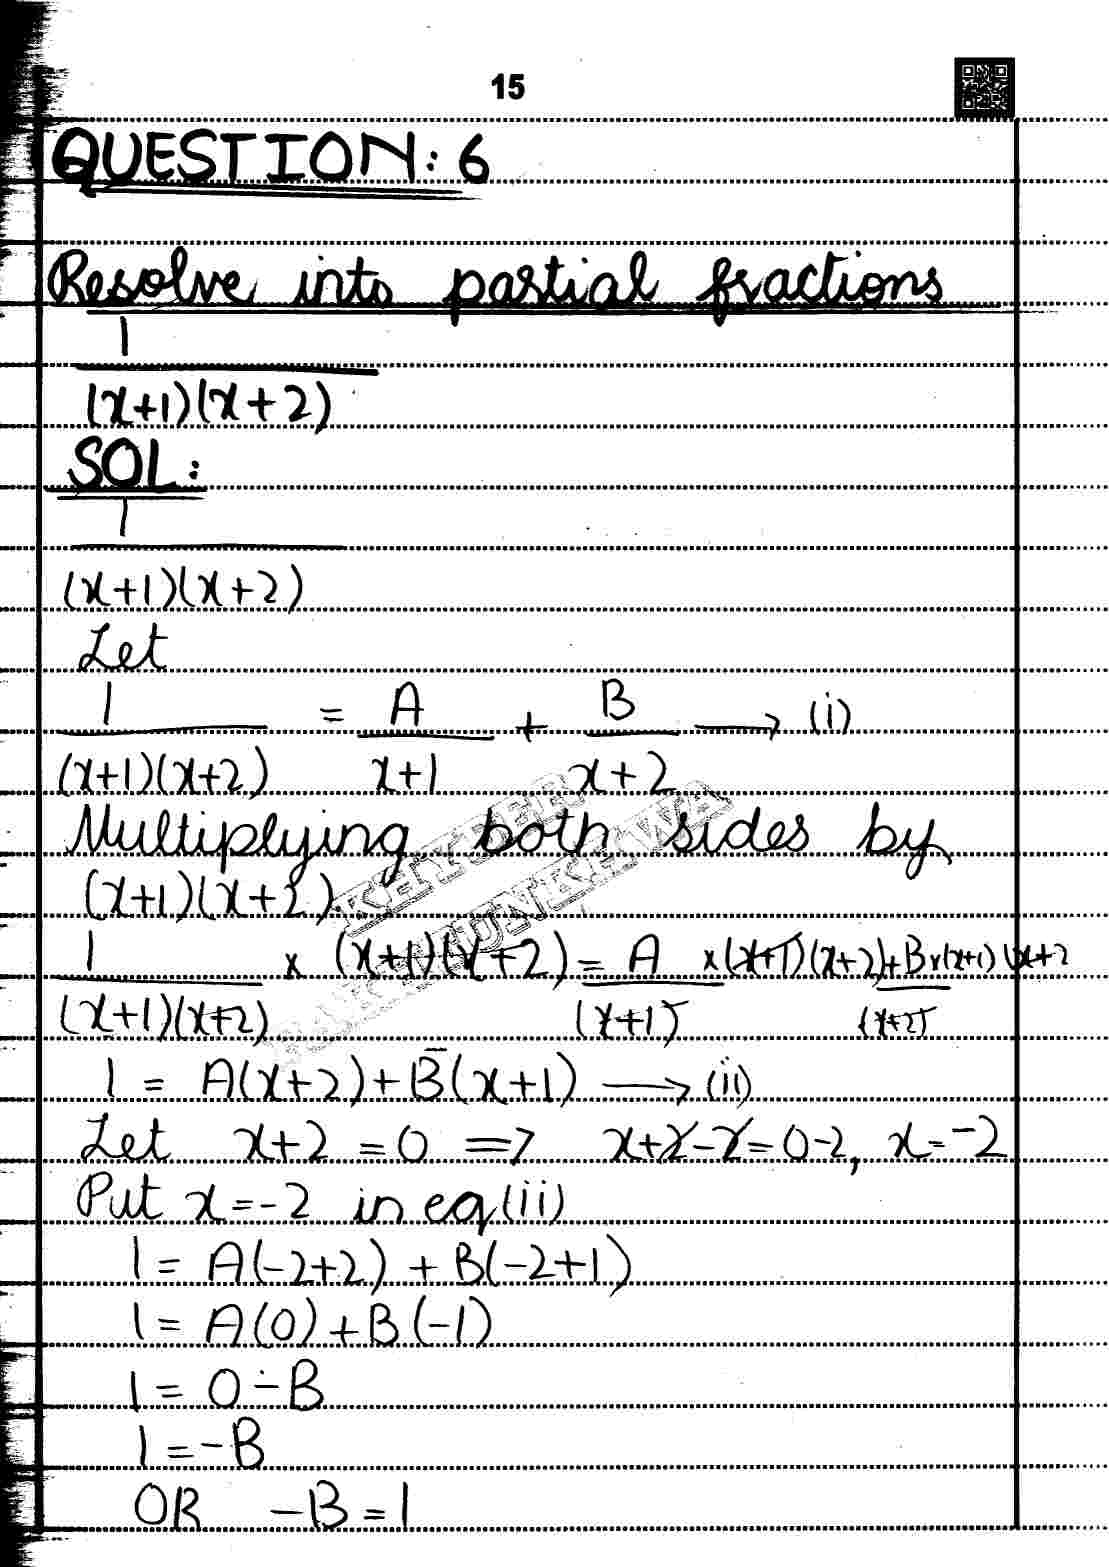 15
QUESTION: 6
Resolve into partial fractions
1
(x+1)(x+2)
SOL:
1
(x+1)(x+2)
Let
1 = A + B → (i)
(x+1)(x+2) x+1 x+2
Multiplying both sides by
(x+1)(x+2)
1 × (x+1)(x+2) = A ×(x+1)(x+2)+B×(x+1)(x+2
(x+1)(x+2) (x+1) (x+2)
1 = A(x+2)+B(x+1) → (ii)
Let x+2=0 ⇒ x+2-2=0-2, x=-2
Put x=-2 in eq(ii)
1 = A(-2+2) + B(-2+1)
1 = A(0)+B(-1)
1 = 0-B
1 = -B
OR -B=1
KHYBER
PAKHTUNKHWA